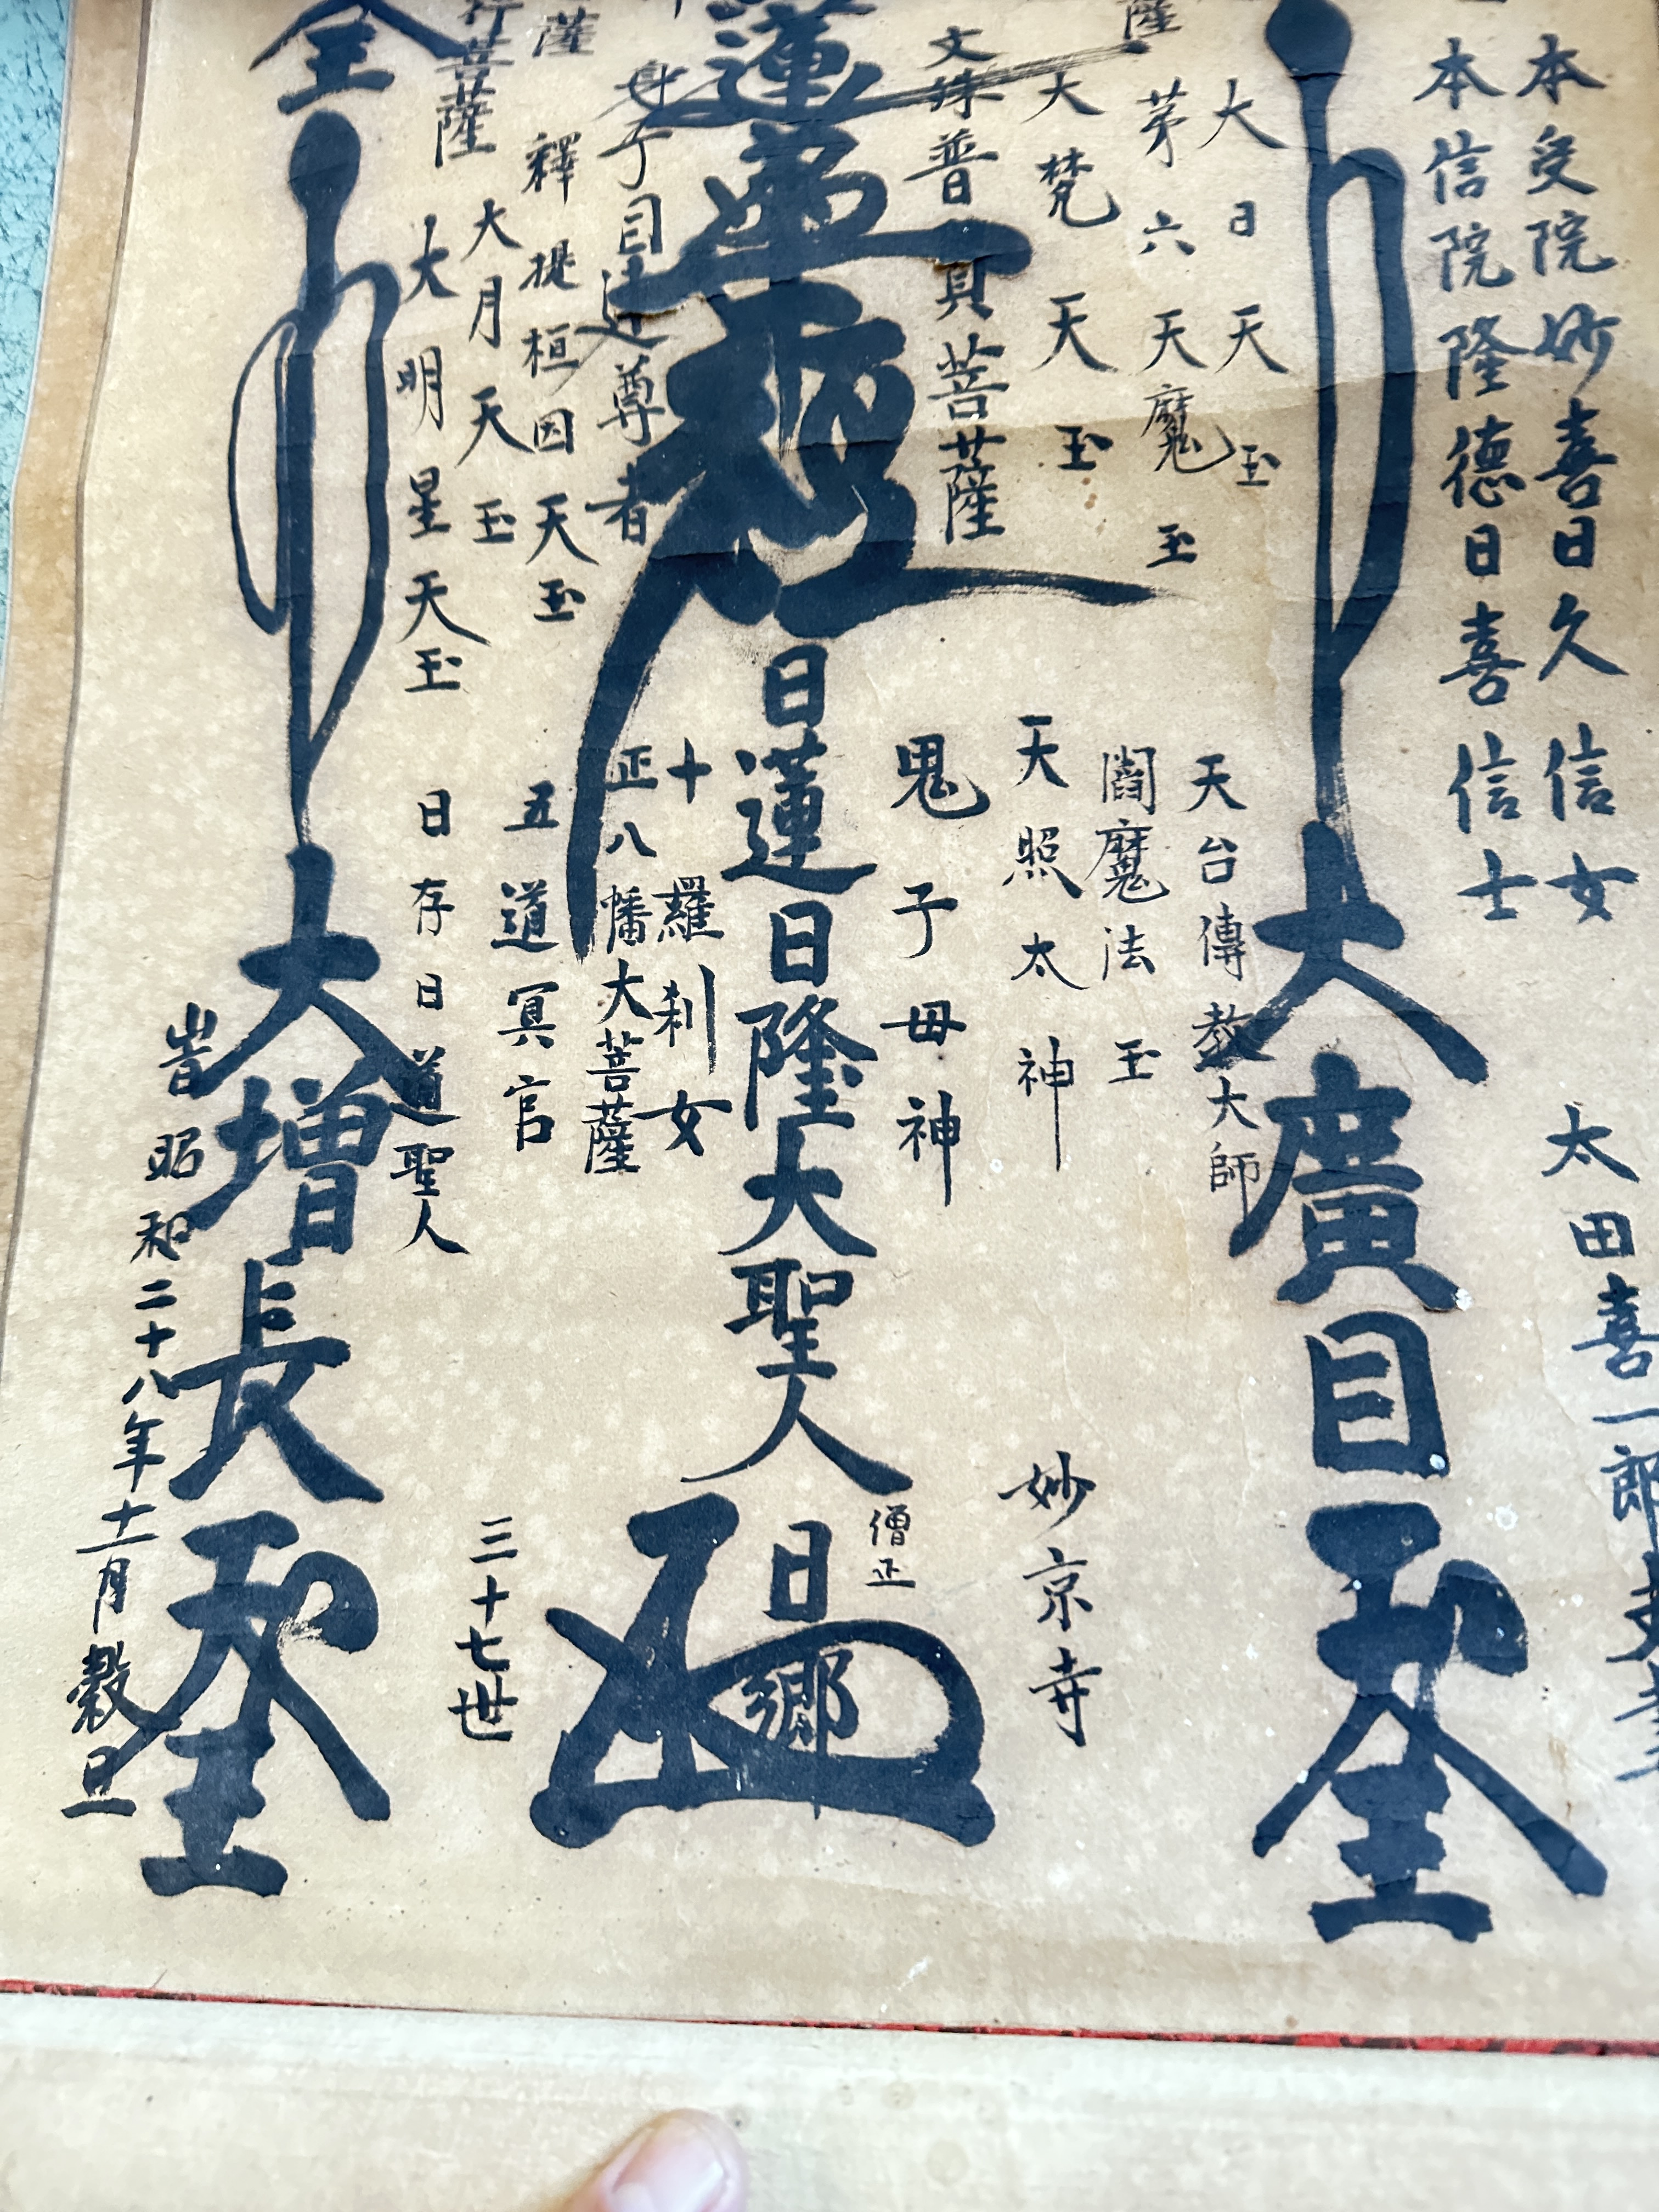 本受院妙喜日久信女
本信院隆徳日喜信士
太田喜一郎
大日天玉
第六天魔玉
大梵天玉
文殊普賢菩薩
蓮華経
身子目連尊者
釋提桓因天玉
大月天玉
大明星天玉
行菩薩
薩
薩
天台傳教大師
閻魔法玉
天照太神
鬼子母神
日蓮日隆大聖人
十羅刹女
正八幡大菩薩
五道冥官
日存日道聖人
大廣目天王
大増長天王
妙京寺
僧正
日郷
三十七世
昔昭和二十八年十一月穀旦